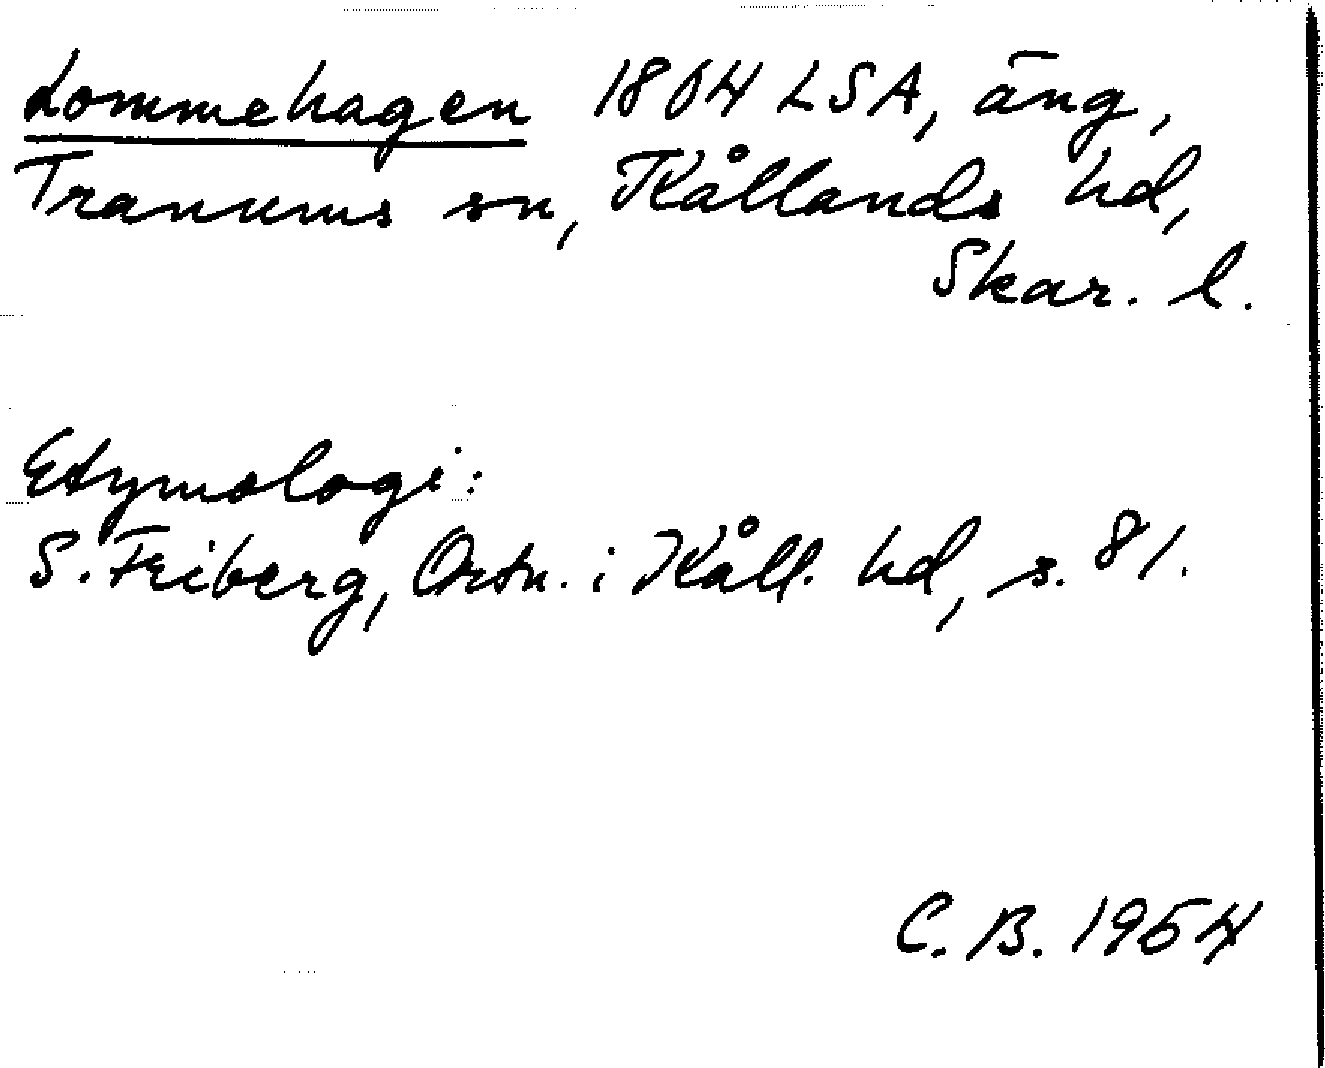 Lommehagen 1804 LSA, äng,
Tranums sn, Kållands hd,
Skar. l.
Etymologi:
S. Friberg, Ortn. i Kåll. hd, s. 81.
C. B. 1954